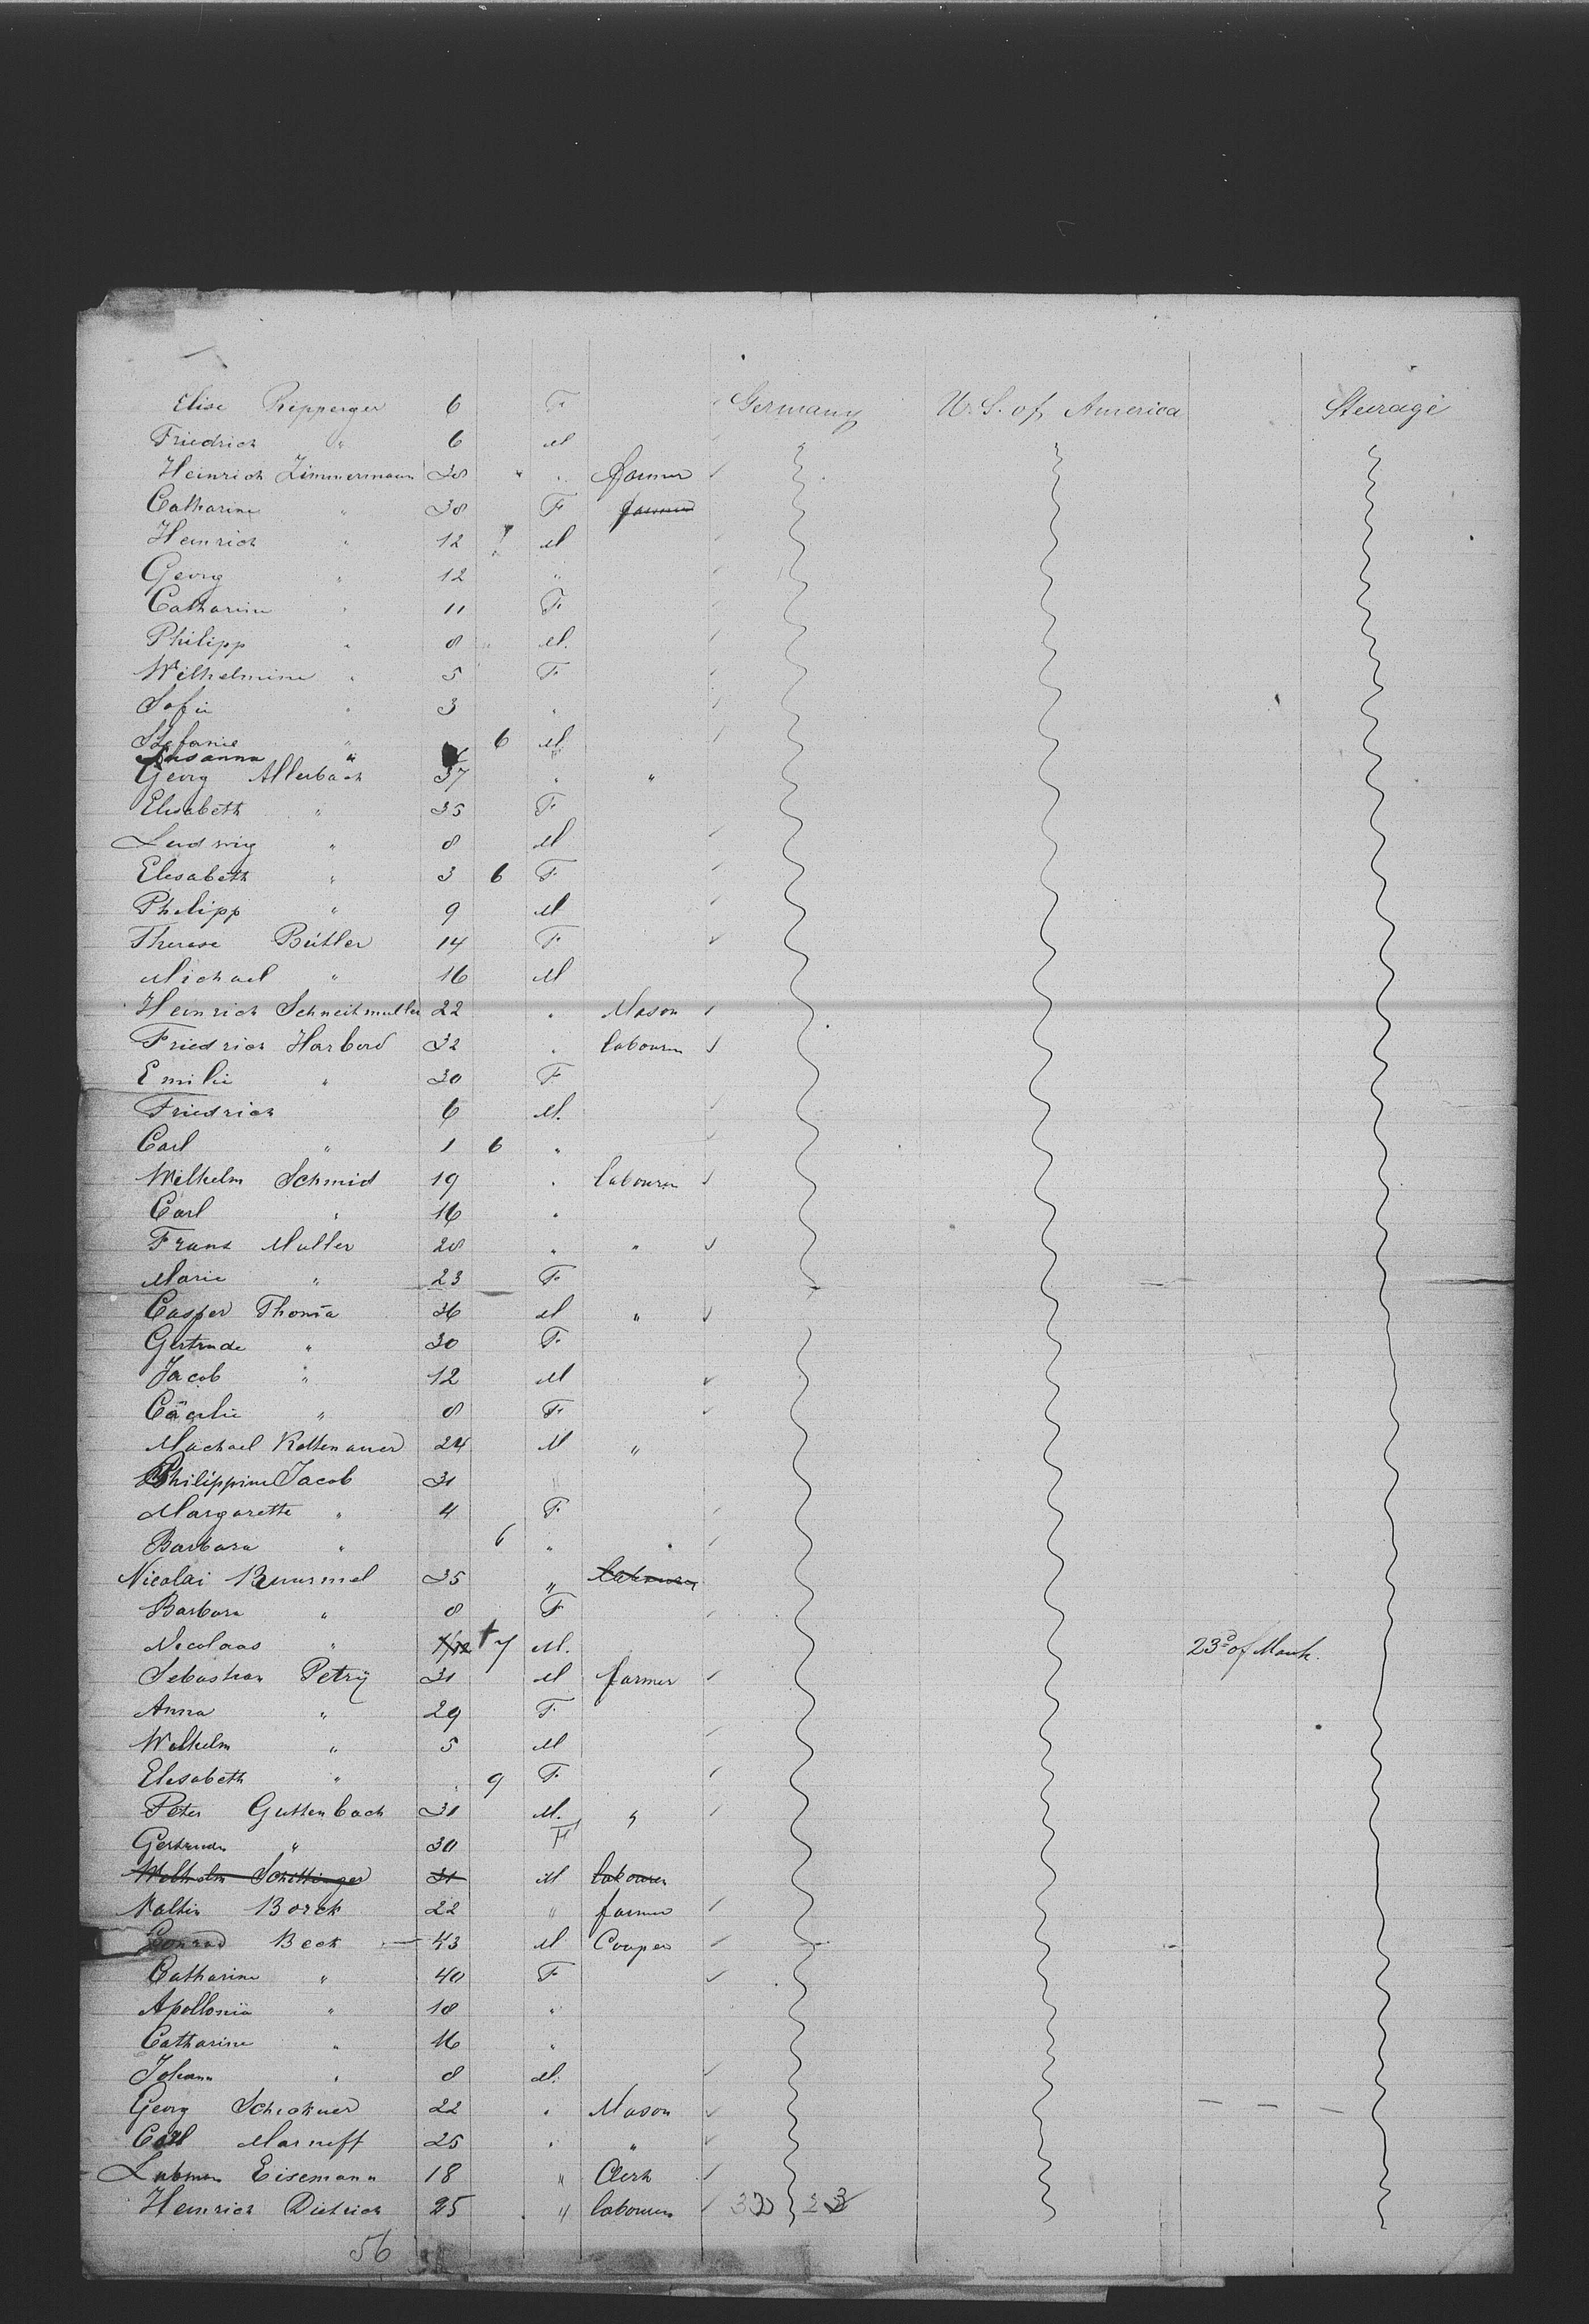 Elise Ripperger 6 F Germany U.S. of America Steerage
Friedrich " 6 M
Heinrich Zimmermann 38 " farmer
Catharine " 38 F farmer
Heinrich " 12 M
Georg " 12 "
Catharine " 11 F
Philipp " 8 M.
Wilhelmine " 5 F
Sofie " 3 "
Stefanie " 6 M
Susanna "
Georg Allerbach 37 " "
Elisabeth " 35 F
Ludwig " 8 M
Elisabeth " 3 6 F
Philipp " 9 M
Therese Bütler 14 F
Michael " 16 M
Heinrich Schneitmuller 22 " Mason
Friedrich Harbord 32 " labourer
Emilie " 30 F
Friedrich 6 M.
Carl " 1 6 "
Wilhelm Schmid 19 " labourer
Carl " 16 "
Franz Muller 28 " "
Marie " 23 F
Casper Thoma 36 M "
Gertrude " 30 F
Jacob " 12 M
Cäcilie " 8 F
Michael Kottenauer 24 M "
Philippine Jacob 31 "
Margarethe " 4 F
Barbara " 6 "
Nicolai 35 " labourer
Barbara " 8 F
Nicolaas " 7 M. 23d of March.
Sebastian Petrÿ 31 M farmer
Anna " 29 F
Wilhelm " 5 M
Elisabeth " 9 F
Peter Guttenbach 31 M. "
Gertrude " 30 F
Wilhelm Schittinger 31 M labourer
Valtin Borck 22 " farmer
Conrad Beck 43 M Cooper
Catharine " 40 F
Apollonia " 18 "
Catharine " 16 "
Johann " 8 M.
Georg 22 " Mason
Carl Marneff 25 " "
Eisemann 18 " Clerk
Heinrich Dietrich 25 " labourer
56